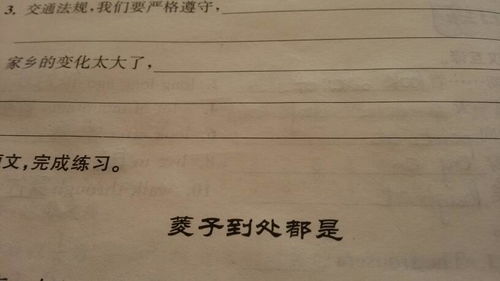 3. 交通法规,我们要严格遵守,
家乡的变化太大了,
文,完成练习。
菱子到处都是